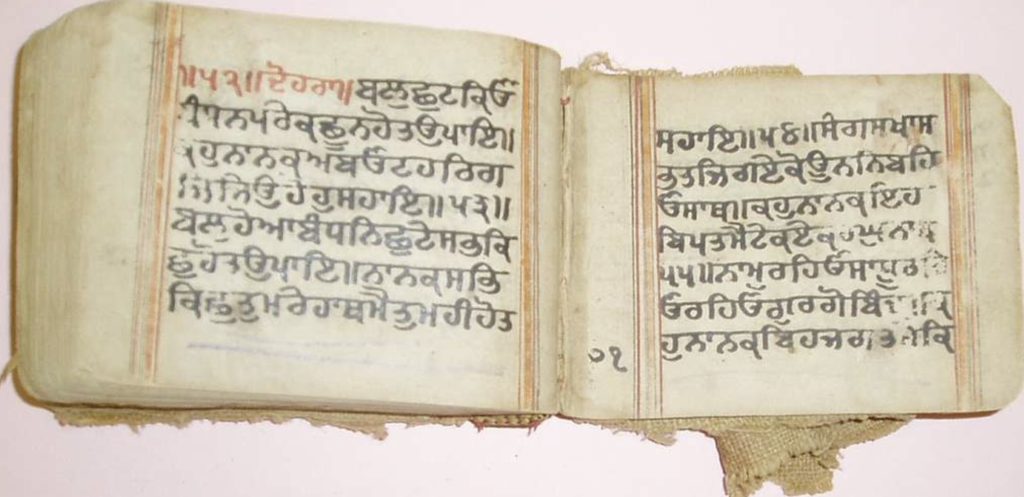 ॥੫੨॥ਦੋਹਰਾ॥ਬਲੁਛੁਟਕਿਓ
ਨਪਰੇਕਛੂਨਹੋਤਉਪਾਇ॥
ਕਹੁਨਾਨਕਅਬਓਟਹਰਿਗ
ਜਿਉਹੋਹੁਸਹਾਇ॥੫੩॥
ਬਲੁਹੋਆਬੰਧਨਿਛੁਟੇਸਭੁਕਿ
ਛੁਹੋਤਉਪਾਇ॥ਨਾਨਕਸਭਿ
ਕਿਛੁਤੁਮਰੇਹਾਥਮੈਤੁਮਹੀਹੋਤ
ਸਹਾਇ॥੫੪॥ਸੰਗਸਖਾਸ
ਭਤਜਿਗਏਕੋਊਨਨਿਬਹਿ
ਓਸਾਥ॥ਕਹੁਨਾਨਕਇਹ
ਬਿਪਤਮੈਟੇਕਏਕ
੫੫॥ਨਾਮੁਰਹਿਓਸਾਧੂਰ
ਓਰਹਿਓਗੁਰਗੋਬਿੰਦ॥ਕ
ਹੁਨਾਨਕਇਹਜਗਤ
੭੧